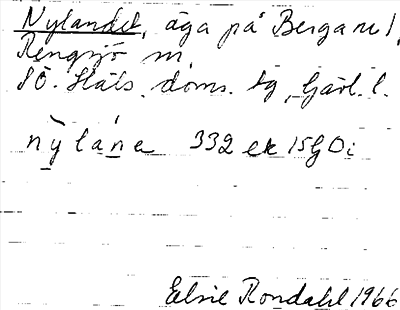 Nylandet, äga på Berga nr 1,
Rengsjö sn
SÖ. Häls. doms. tg, Gävl. l.
nỳlána 332 ek 15G0i
Elsie Rondahl 1966